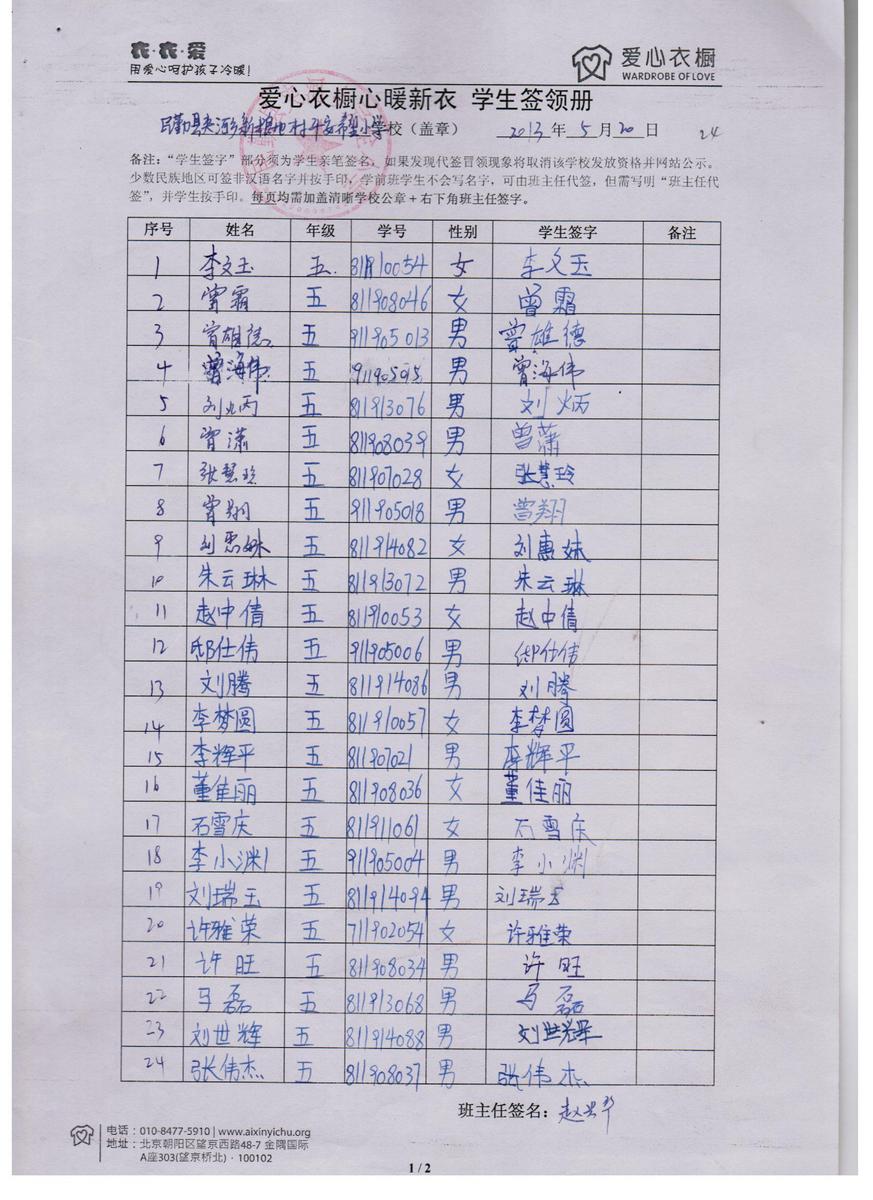 衣·衣·爱
用爱心呵护孩子冷暖!
爱心衣橱
WARDROBE OF LOVE
爱心衣橱心暖新衣 学生签领册
民勤县夹河乡 村平安希望小学校（盖章） 2013年5月20日 24
备注：“学生签字”部分须为学生亲笔签名，如果发现代签冒领现象将取消该学校发放资格并网站公示。
少数民族地区可签非汉语名字并按手印，学前班学生不会写名字，可由班主任代签，但需写明“班主任代
签”，并学生按手印。每页均需加盖清晰学校公章+右下角班主任签字。
序号 姓名 年级 学号 性别 学生签字 备注
1 李文玉 五. 811910054 女 李文玉
2 曾霜 五 811908046 女 曾霜
3 曾雄德 五 911905013 男 曾雄德
4 曾海伟 五 男 曾海伟
5 刘炳 五 811913076 男 刘炳
6 曾潇 五 811908039 男 曾萧
7 张慧玲 五 811907028 女 张慧玲
8 曾翔 五 911905018 男 曾翔
9 刘惠妹 五 811914082 女 刘惠妹
10 朱云琳 五 811913072 男 朱云琳
11 赵中倩 五 811910053 女 赵中倩
12 邸仕伟 五 911905006 男 邸仕伟
13 刘腾 五 811914086 男 刘腾
14 李梦圆 五 811910057 女 李梦圆
15 李辉平 五 811907021 男 李辉平
16 董佳丽 五 811908036 女 董佳丽
17 石雪庆 五 811911061 女 石雪庆
18 李小渊 五 911905004 男 李小渊
19 刘瑞玉 五 811914094 男 刘瑞玉
20 许雅荣 五 711902054 女 许雅荣
21 许旺 五 811908034 男 许旺
22 马磊 五 811913068 男 马磊
23 刘世辉 五 811914088 男 刘世辉
24 张伟杰 五 811908037 男 张伟杰
班主任签名：赵
电话：010-8477-5910 | www.aixinyichu.org
地址：北京朝阳区望京西路48-7 金隅国际
A座303(望京桥北)·100102
1 / 2